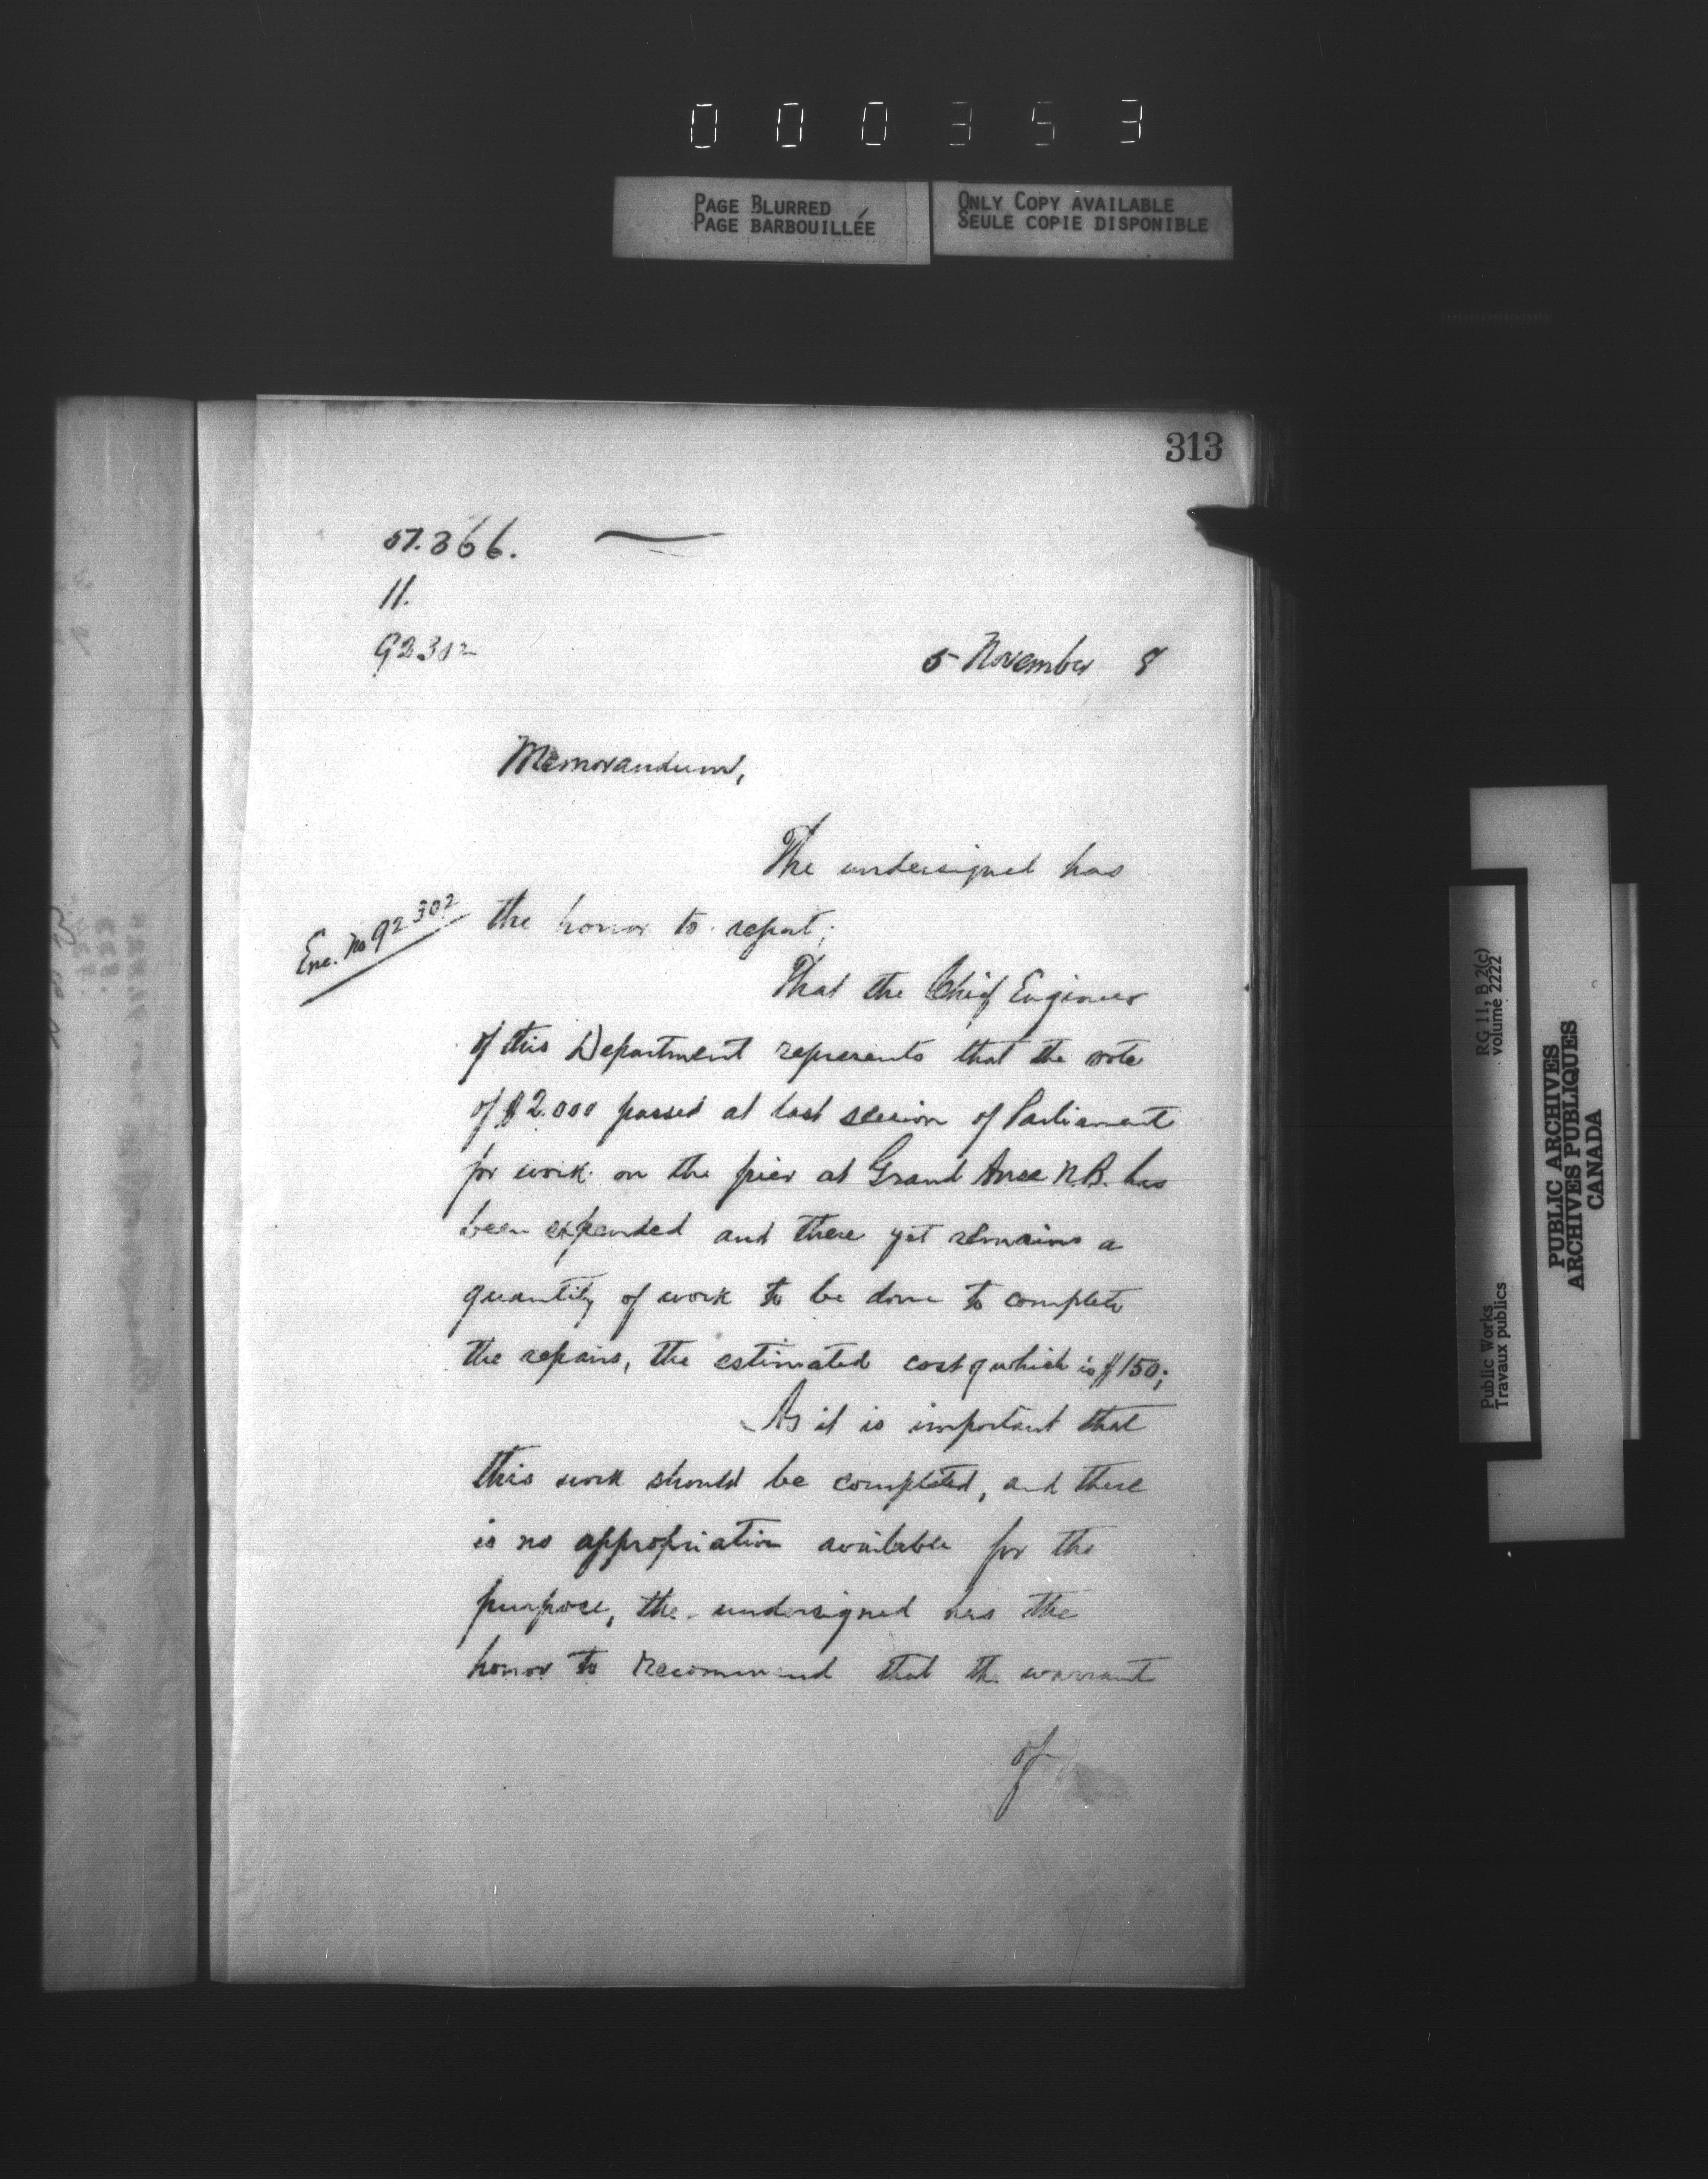 000353
PAGE BLURRED
PAGE BARBOUILLÉE
ONLY COPY AVAILABLE
SEULE COPIE DISPONIBLE
313
57.366.
11.
92302
5 November 8
Memorandum,
The undersigned has
Enc. No 92302
the honor to report;
That the Chief Engineer
of this Department represents that the vote
of $2.000 passed at last session of Parliament
for work on the pier at Grand Anse N.B. has
been expended and there yet remains a
quantity of work to be done to complete
the repairs, the estimated cost of which is $150;
As it is important that
this work should be completed, and there
is no appropriation available for the
purpose, the undersigned has the
honor to recommend that the warrant
of
RG 11, B2(c)
volume 2222
Public Works
Travaux publics
PUBLIC ARCHIVES
ARCHIVES PUBLIQUES
CANADA